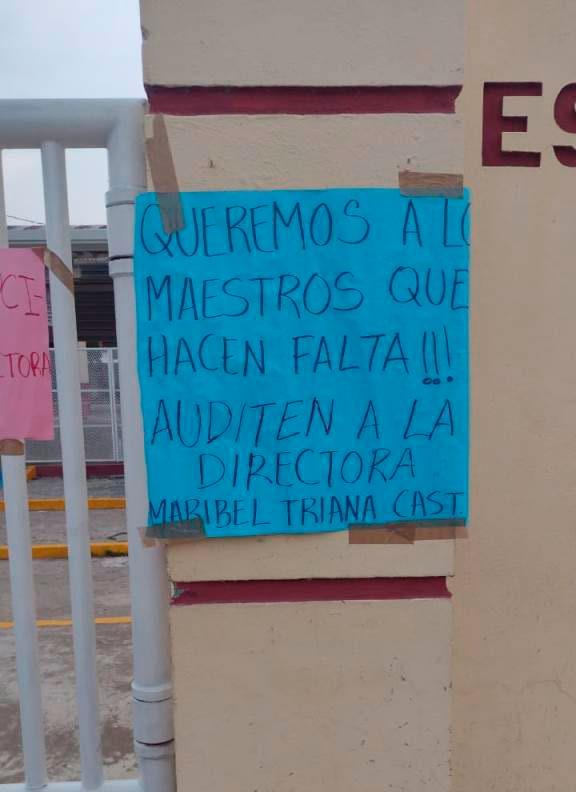 QUEREMOS A LO
MAESTROS QUE
HACEN FALTA!!!
AUDITEN A LA
DIRECTORA
MARIBEL TRIANA CAST.
CI-
CTORA
ES